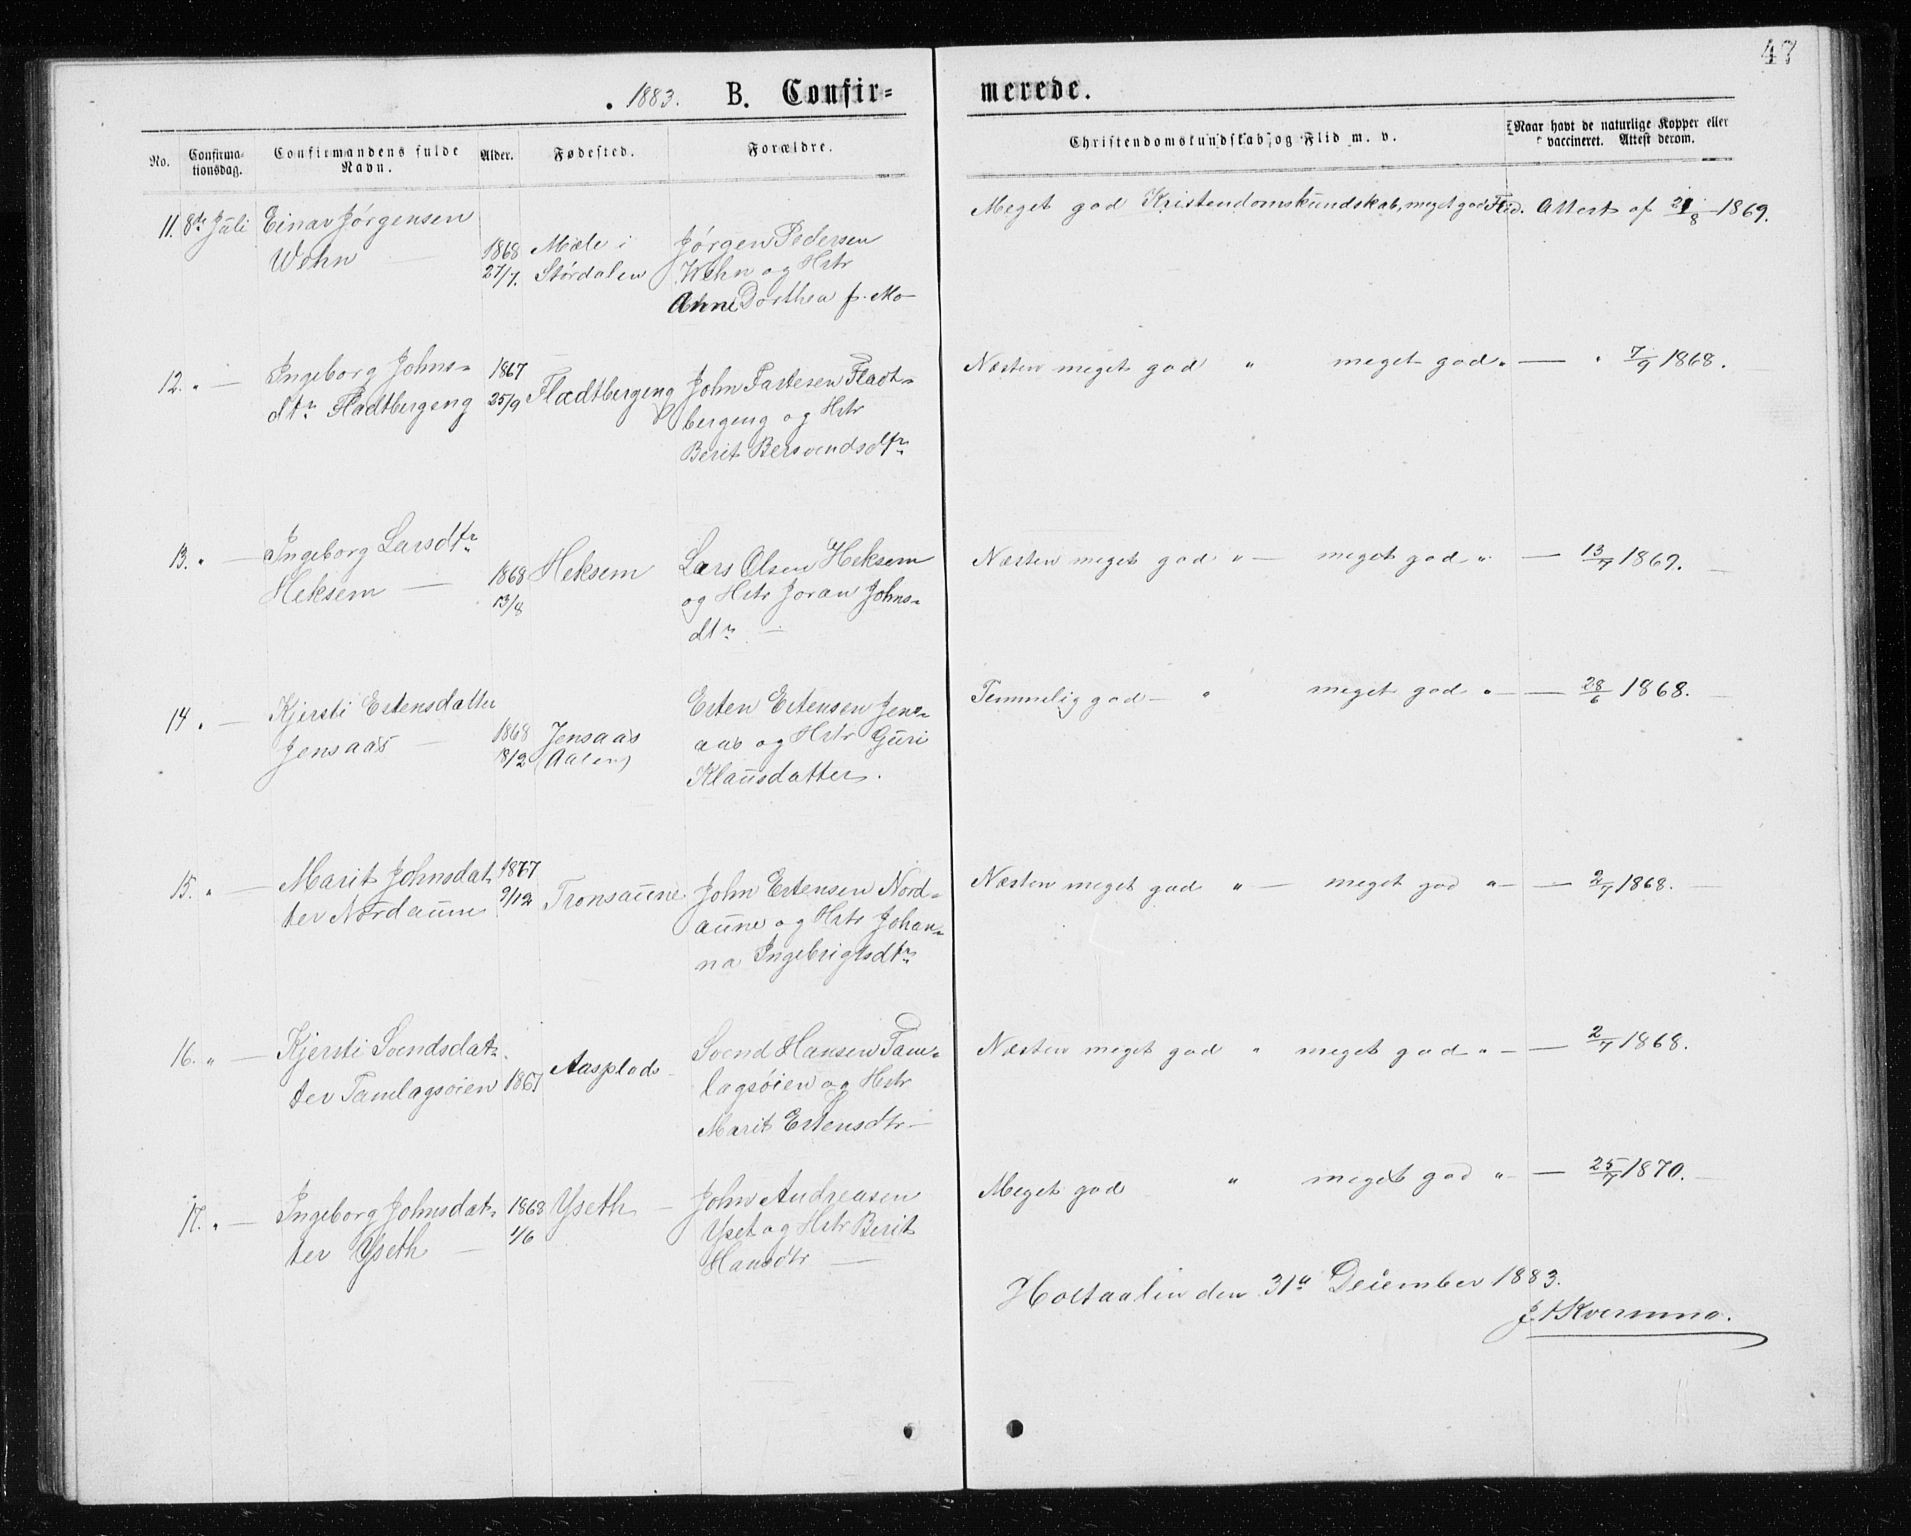 47
1883. B. Confir-
merede.
No.
Confirma-
tionsdag.
Confirmandens fulde
Navn.
Alder.
Fødested.
Forældre.
Christendomskundskab og Flid m. v.
Naar havt de naturlige Kopper eller
vaccineret. Attest derom.
11. 8de Juli Einar Jørgensen
Wehn
1868
27/7.
Mæle i
Størdalen
Jørgen Pedersen
Wehn og Hstr
Anne Dorthea f. Mo
Meget god Kristendomskundskab, meget god Flid. Attest af 21/8 1869.
12. „ — Ingeborg Johns-
dtr Fladtbergeng
1867
25/9
Fladtbergeng
John Tastesen Fladt-
bergeng og Hstr
Berit Bersvendsdtr
Næsten meget god „ meget god „ — „ 7/9 1868.
13. „ — Ingeborg Larsdtr
Heksem —
1868
13/8
Heksem
Lars Olsen Heksem
og Hstr Joran Johns-
dtr —
Næsten meget god „ — meget god „ — 13/7 1869.
14 „ — Kjersti Estensdatter
Jensaas —
1868
18/2
Jensaas
(Aalen)
Esten Estensen Jens-
aas og Hstr Guri
Klausdatter.
Temmelig god — „ meget god „ — 28/6 1868.
15. „ — Marit Johnsdat-
ter Nordaune
1867
9/12
Tronsaune
John Estensen Nord-
aune og Hstr Johan-
na Ingebrigtsdtr
Næsten meget god „ — meget god „ — 2/7 1868.
16. „ — Kjersti Svendsdat-
ter Tamlagsøien
1867
Aasplads
Svend Hansen Tam-
lagsøien og Hstr
Marit Estensdtr —
Næsten meget god „ meget god „ — 2/7 1868.
17. „ — Ingeborg Johnsdat-
ter Yseth —
1868
1/6
Yseth —
John Andreasen
Yset og Hstr Berit
Hansdtr —
Meget god „ meget god „ — 25/7 1870.
Holtaalen den 31te December 1883.
Kvernmo.